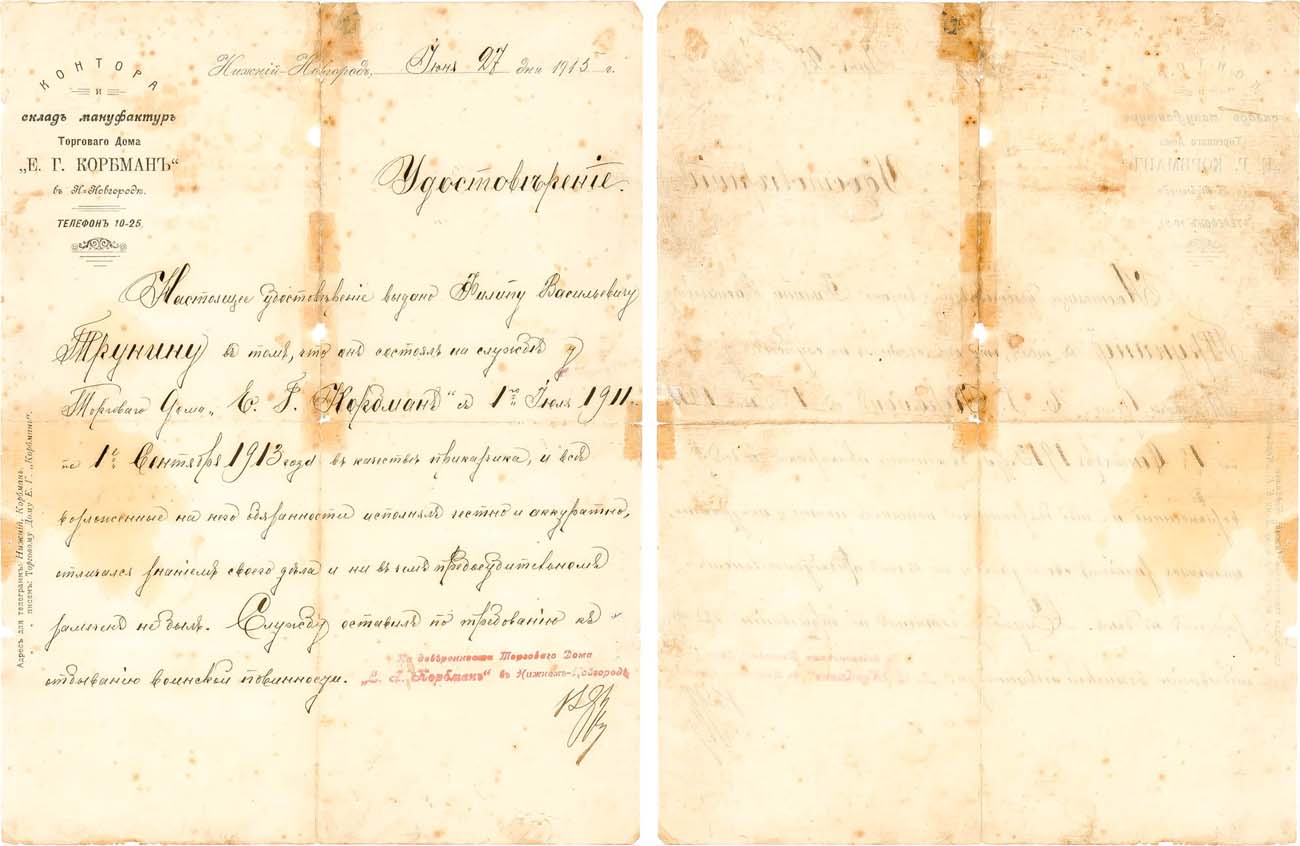 КОНТОРА
и
складъ мануфактуръ
Торговаго Дома
„Е. Г. КОРБМАНЪ“
въ Н-Новгородѣ.
ТЕЛЕФОНЪ 10-25,
Нижній-Новгородъ, Іюня 27 дня 1915 г.
Удостовѣреніе.
Настоящее удостовѣреніе выдано Филипу Васильевичу
Трунину въ томъ, что онъ состоялъ на службѣ у
Торговаго Дома „Е. Г. Корбманъ“ съ 1го Іюля 1911
по 1е Сентября 1913 года въ качествѣ приказчика, и всѣ
возложенные на него обязанности исполнялъ честно и аккуратно,
отличался знаніемъ своего дѣла и ни въ чемъ предосудительномъ
замѣченъ не былъ. Службу оставилъ по требованію къ
отбыванію воинской повинности.
По довѣренности Торговаго Дома
„Е. Г. Корбманъ“ въ Нижнемъ-Новгородѣ
Адресъ для телеграммъ: Нижній, Корбманъ.
„ „ писемъ: Торговому Дому Е. Г. „Корбманъ“.